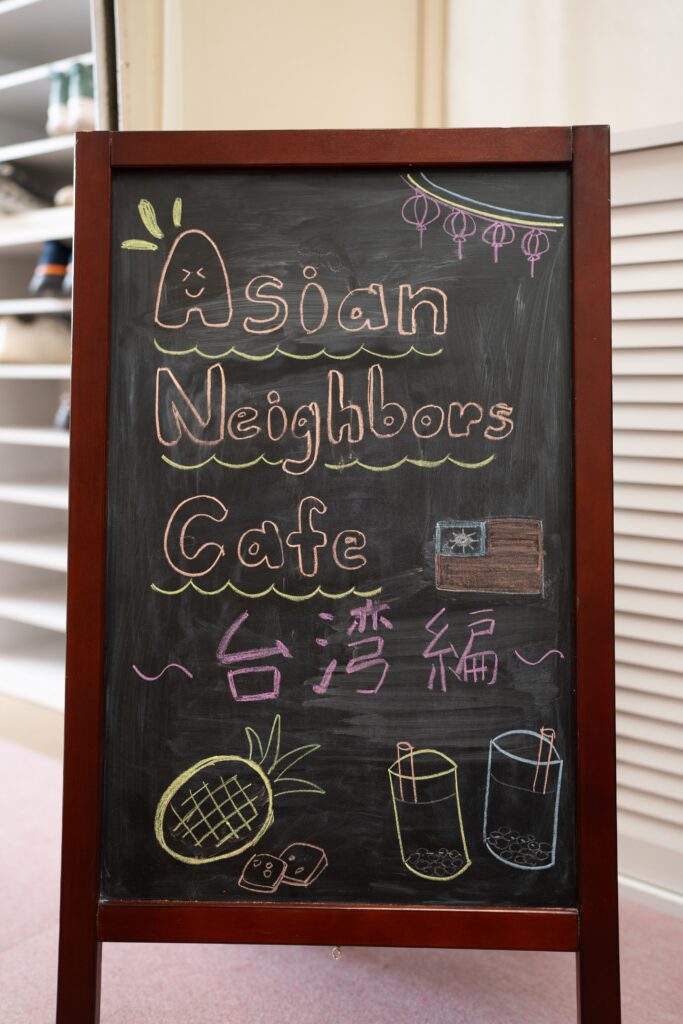 Asian
Neighbors
Cafe
~台湾編~